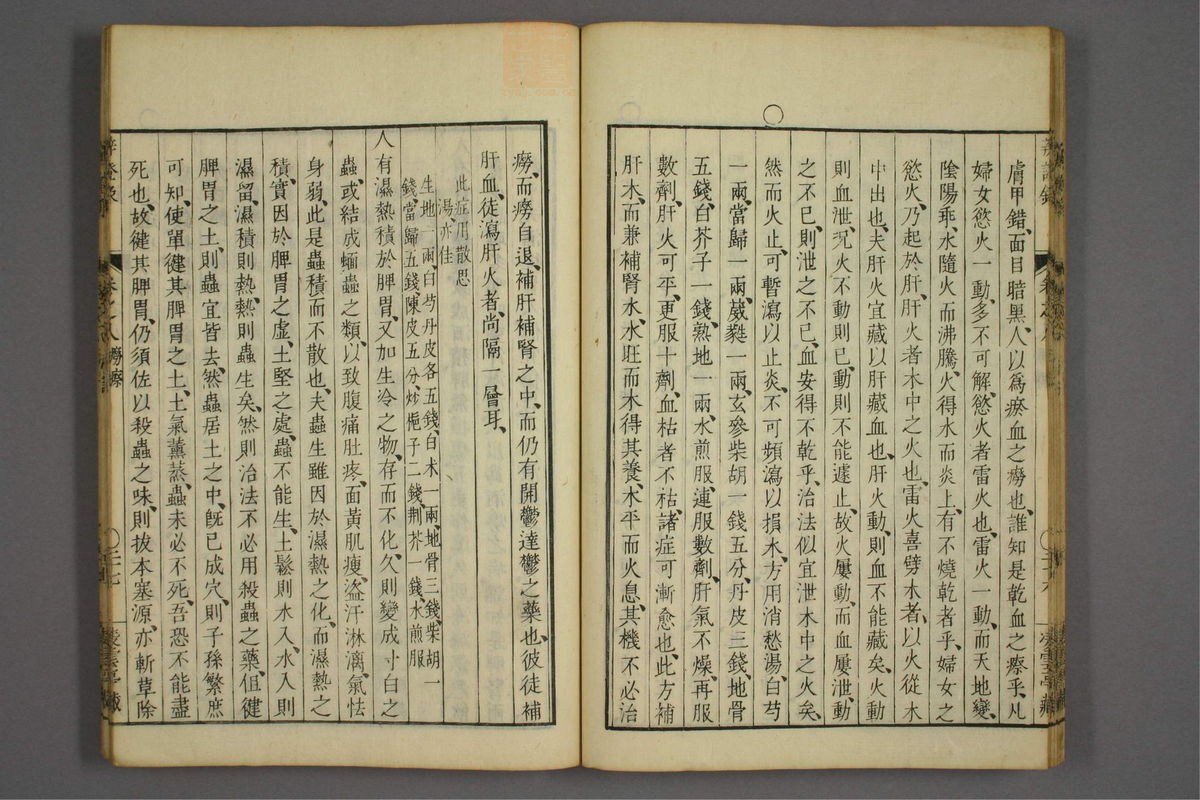 膚甲錯、面目暗黑、人以為瘀血之癆也、誰知是乾血之瘵乎、凡
婦女慾火一動、多不可解、慾火者雷火也、雷火一動、而天地變、
陰陽乖、水隨火而沸騰、火得水而炎上、有不燒乾者乎、婦女之
慾火、乃起於肝、肝火者木中之火也、雷火喜劈木者、以火從木
中出也、夫肝火宜藏、以肝藏血也、肝火動、則血不能藏矣、火動
則血泄、况火不動則已、動則不能遽止、故火屢動、而血屢泄、動
之不已、則泄之不已、血安得不乾乎、治法似宜泄木中之火矣、
然而火止、可暫瀉以止炎、不可頻瀉以損木、方用消愁湯、白芍
一兩、當歸一兩、葳蕤一兩、玄參柴胡一錢五分、丹皮三錢、地骨
五錢、白芥子一錢、熟地一兩、水煎服、連服數劑、肝氣不燥、再服
數劑、肝火可平、更服十劑、血枯者不枯、諸症可漸愈也、此方補
肝木、而兼補腎水、水旺而木得其養、木平而火息、其機不必治
癆、而癆自退、補肝補腎之中、而仍有開鬱達鬱之藥也、彼徒補
肝血、徒瀉肝火者、尚隔一層耳、
此症用散思
湯亦佳
生地一兩、白芍丹皮各五錢、白朮一兩、地骨三錢、柴胡一
錢、當歸五錢、陳皮五分、炒梔子二錢、荆芥一錢、水煎服
人有濕熱積於脾胃、又加生冷之物、存而不化、久則變成寸白之
蟲、或結成蛔蟲之類、以致腹痛肚疼、面黃肌瘦、盜汗淋漓、氣怯
身弱、此是蟲積而不散也、夫蟲生雖因於濕熱之化、而濕熱之
積、實因於脾胃之虛、土堅之處、蟲不能生、土鬆則水入、水入則
濕留、濕積則熱、熱則蟲生矣、然則治法不必用殺蟲之藥、但健
脾胃之土、則蟲宜皆去、然蟲居土之中、旣已成穴、則子孫繁庶
可知、使單健其脾胃之土、土氣薰蒸、蟲未必不死、吾恐不能盡
死也、故健其脾胃、仍須佐以殺蟲之味、則拔本塞源、亦斬草除
卷之八
癆瘵
二十七